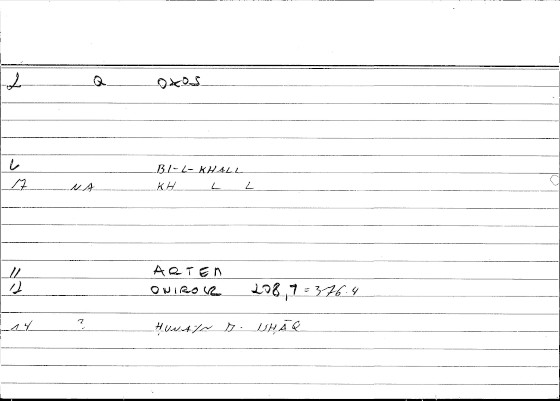 2 Q OXOS
6 BI-L-KHALL
17 NA KH L L
11 ARTEM
12 ONIROCR 208,7 = 376.4
14 ? ḤUNAYN B. ISḤĀQ